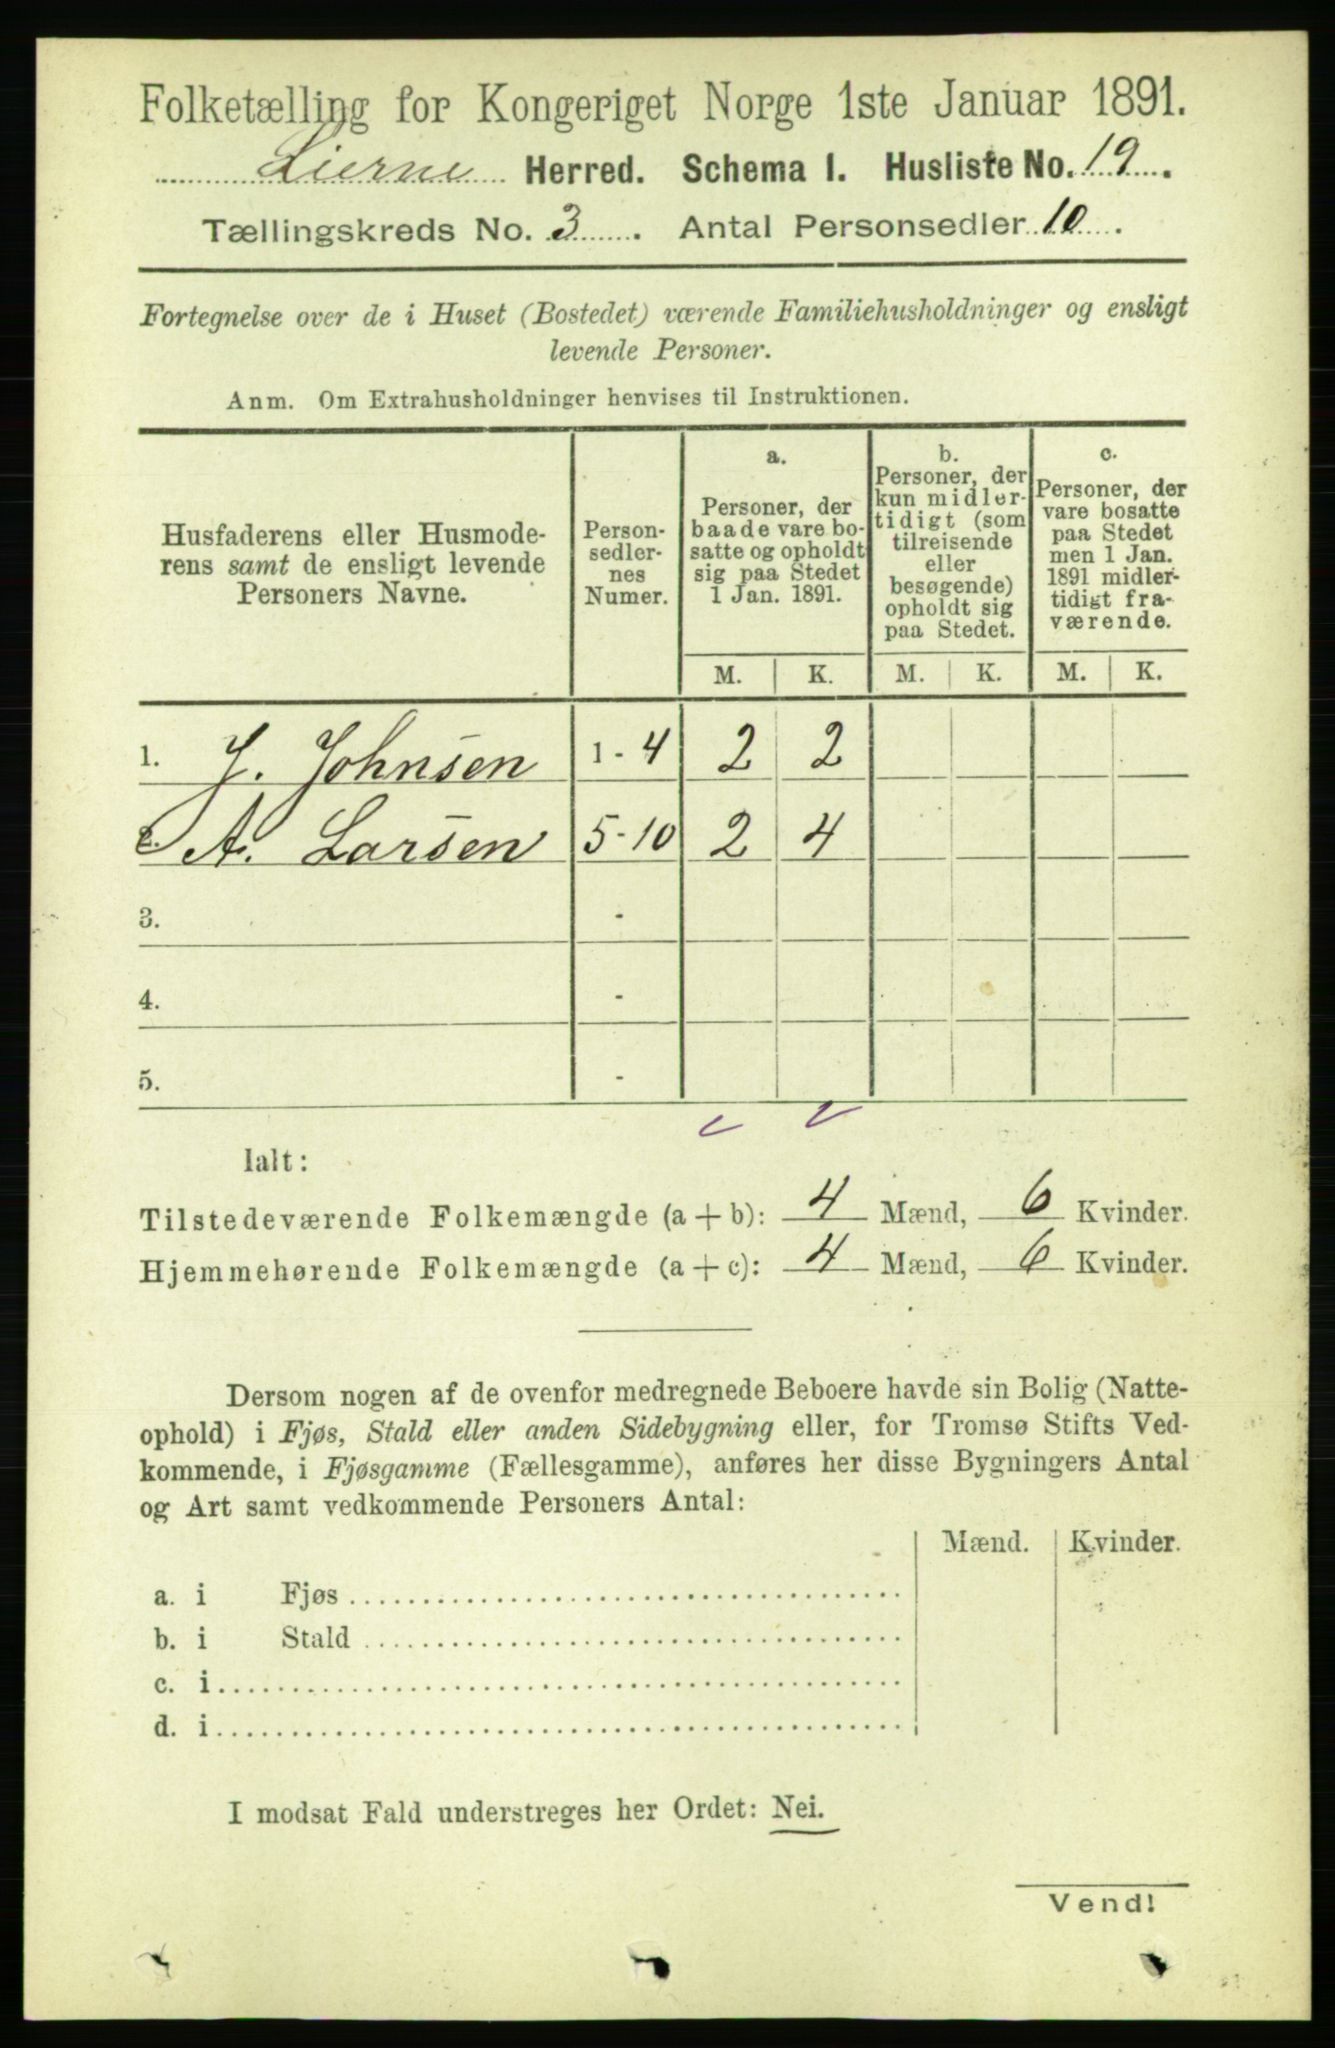 Folketælling for Kongeriget Norge 1ste Januar 1891.
Lierne Herred. Schema I. Husliste No. 19.
Tællingskreds No. 3. Antal Personsedler 10.
Fortegnelse over de i Huset (Bostedet) værende Familiehusholdninger og ensligt
levende Personer.
Anm. Om Extrahusholdninger henvises til Instruktionen.
Husfaderens eller Husmode-
rens samt de ensligt levende
Personers Navne.
Person-
sedler-
nes
Numer.
a.
Personer, der
baade vare bo-
satte og opholdt
sig paa Stedet
1 Jan. 1891.
b.
Personer, der
kun midler-
tidigt (som
tilreisende
eller
besøgende)
opholdt sig
paa Stedet.
c.
Personer, der
vare bosatte
paa Stedet
men 1 Jan.
1891 midler-
tidigt fra-
værende.
M. K. M. K. M. K.
1. J. Johnsen 1-4 2 2
2. A. Larsen 5-10 2 4
3. -
4. -
5. -
Ialt:
Tilstedeværende Folkemængde (a + b): 4 Mænd, 6 Kvinder.
Hjemmehørende Folkemængde (a + c): 4 Mænd, 6 Kvinder.
Dersom nogen af de ovenfor medregnede Beboere havde sin Bolig (Natte-
ophold) i Fjøs, Stald eller anden Sidebygning eller, for Tromsø Stifts Ved-
kommende, i Fjøsgamme (Fællesgamme), anføres her disse Bygningers Antal
og Art samt vedkommende Personers Antal:
Mænd. Kvinder.
a. i Fjøs
b. i Stald
c. i
d. i
I modsat Fald understreges her Ordet: Nei.
Vend!